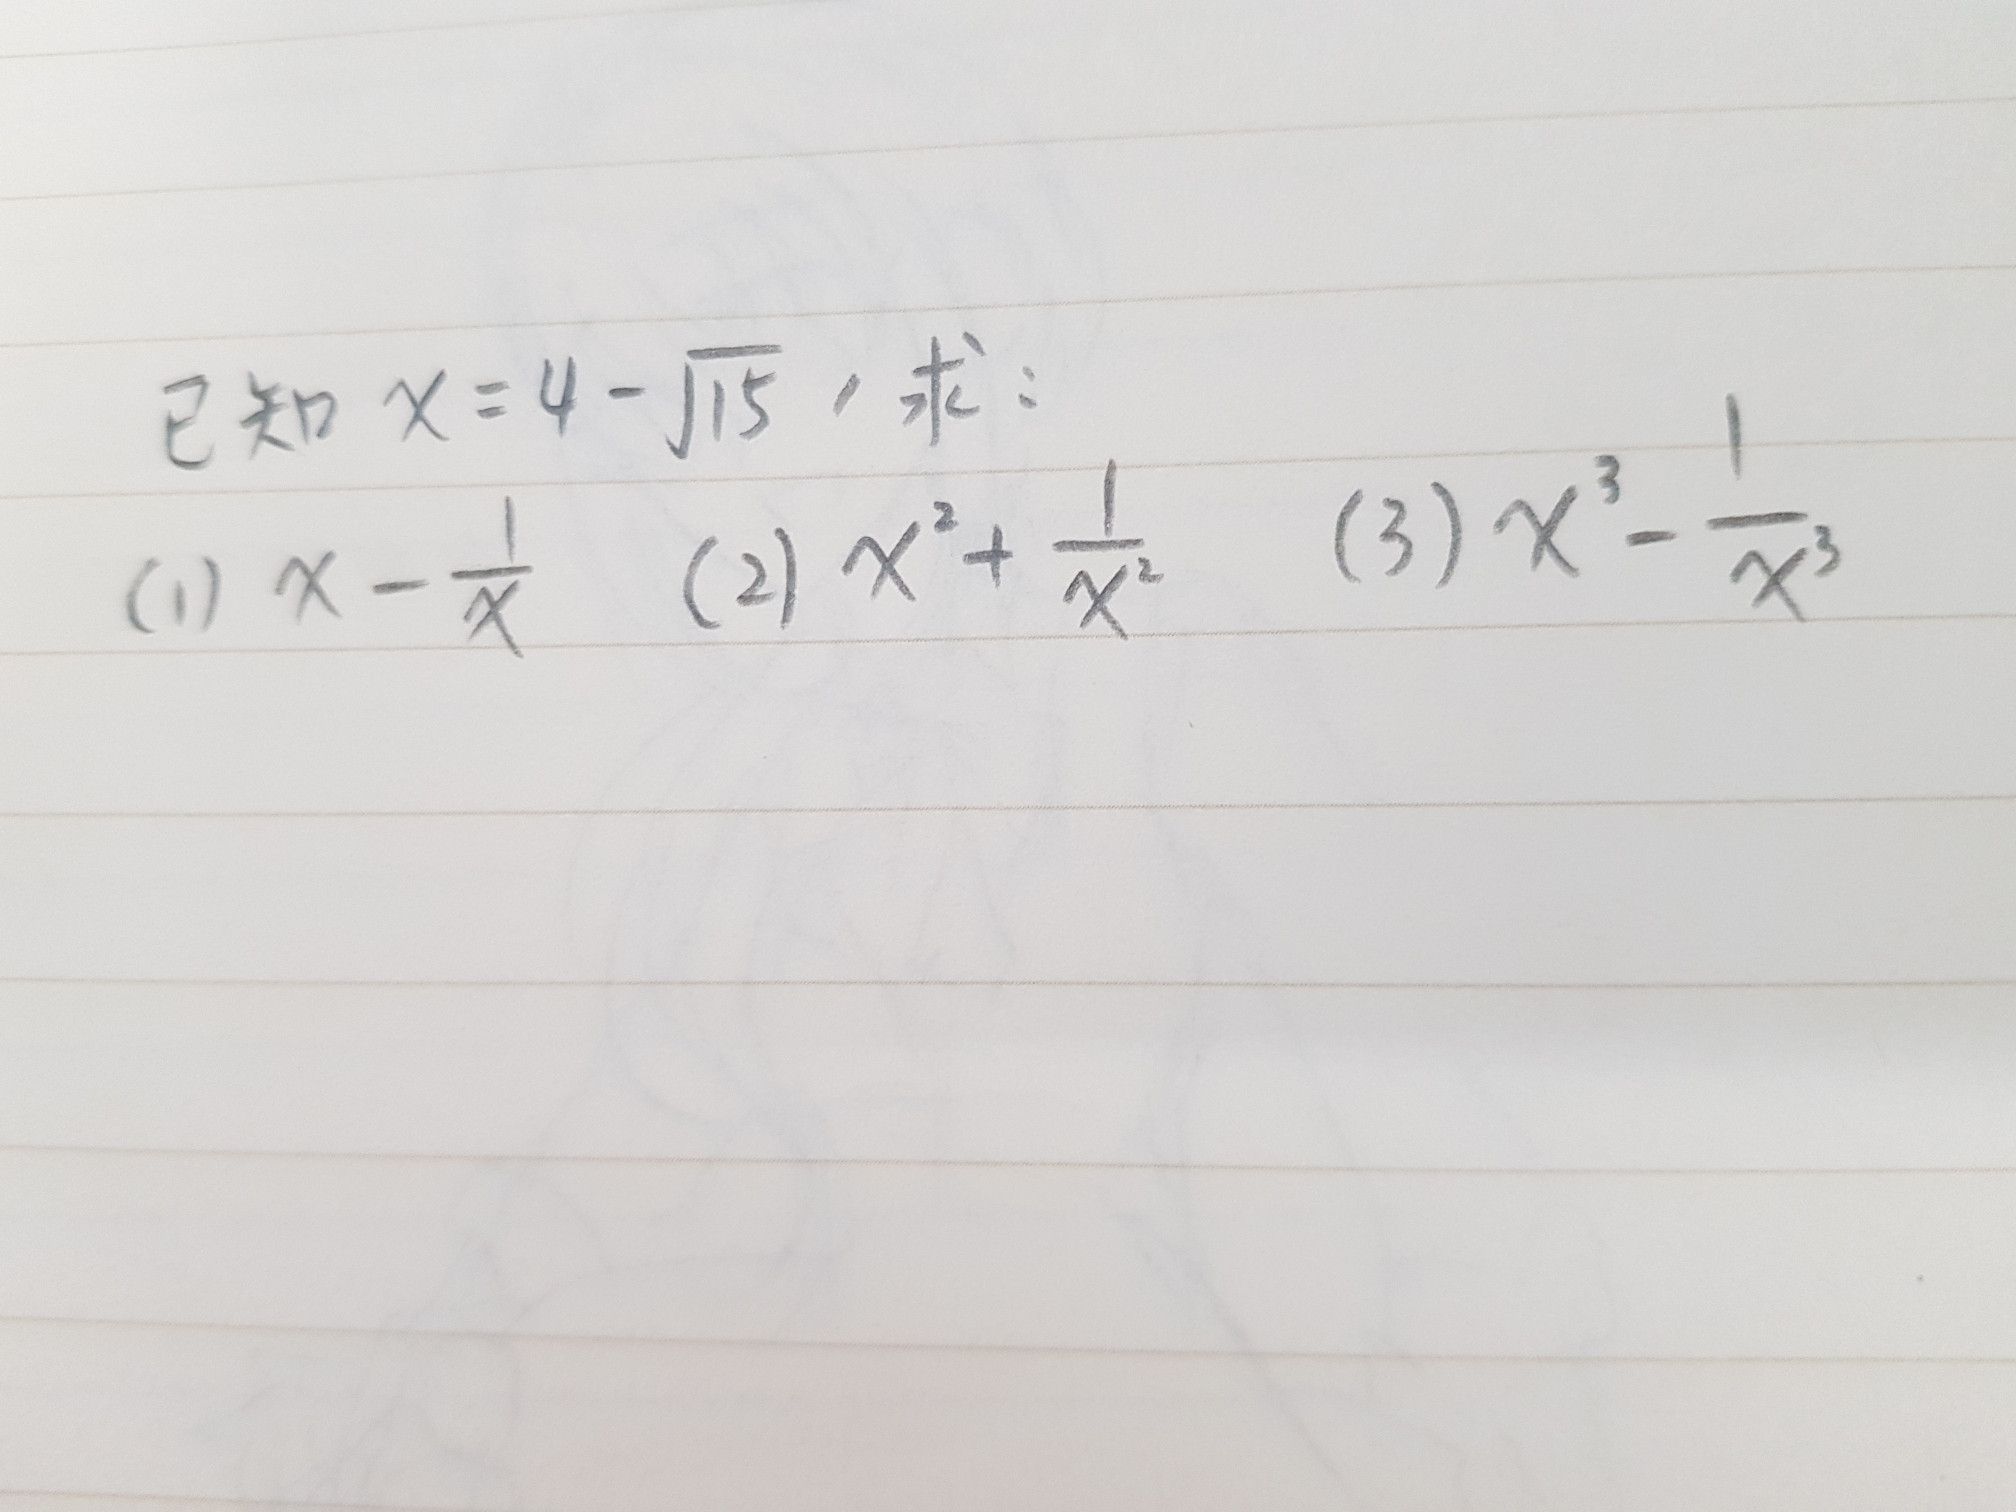 已知 x = 4 - √15 , 求 :
(1) x - 1/x (2) x² + 1/x² (3) x³ - 1/x³